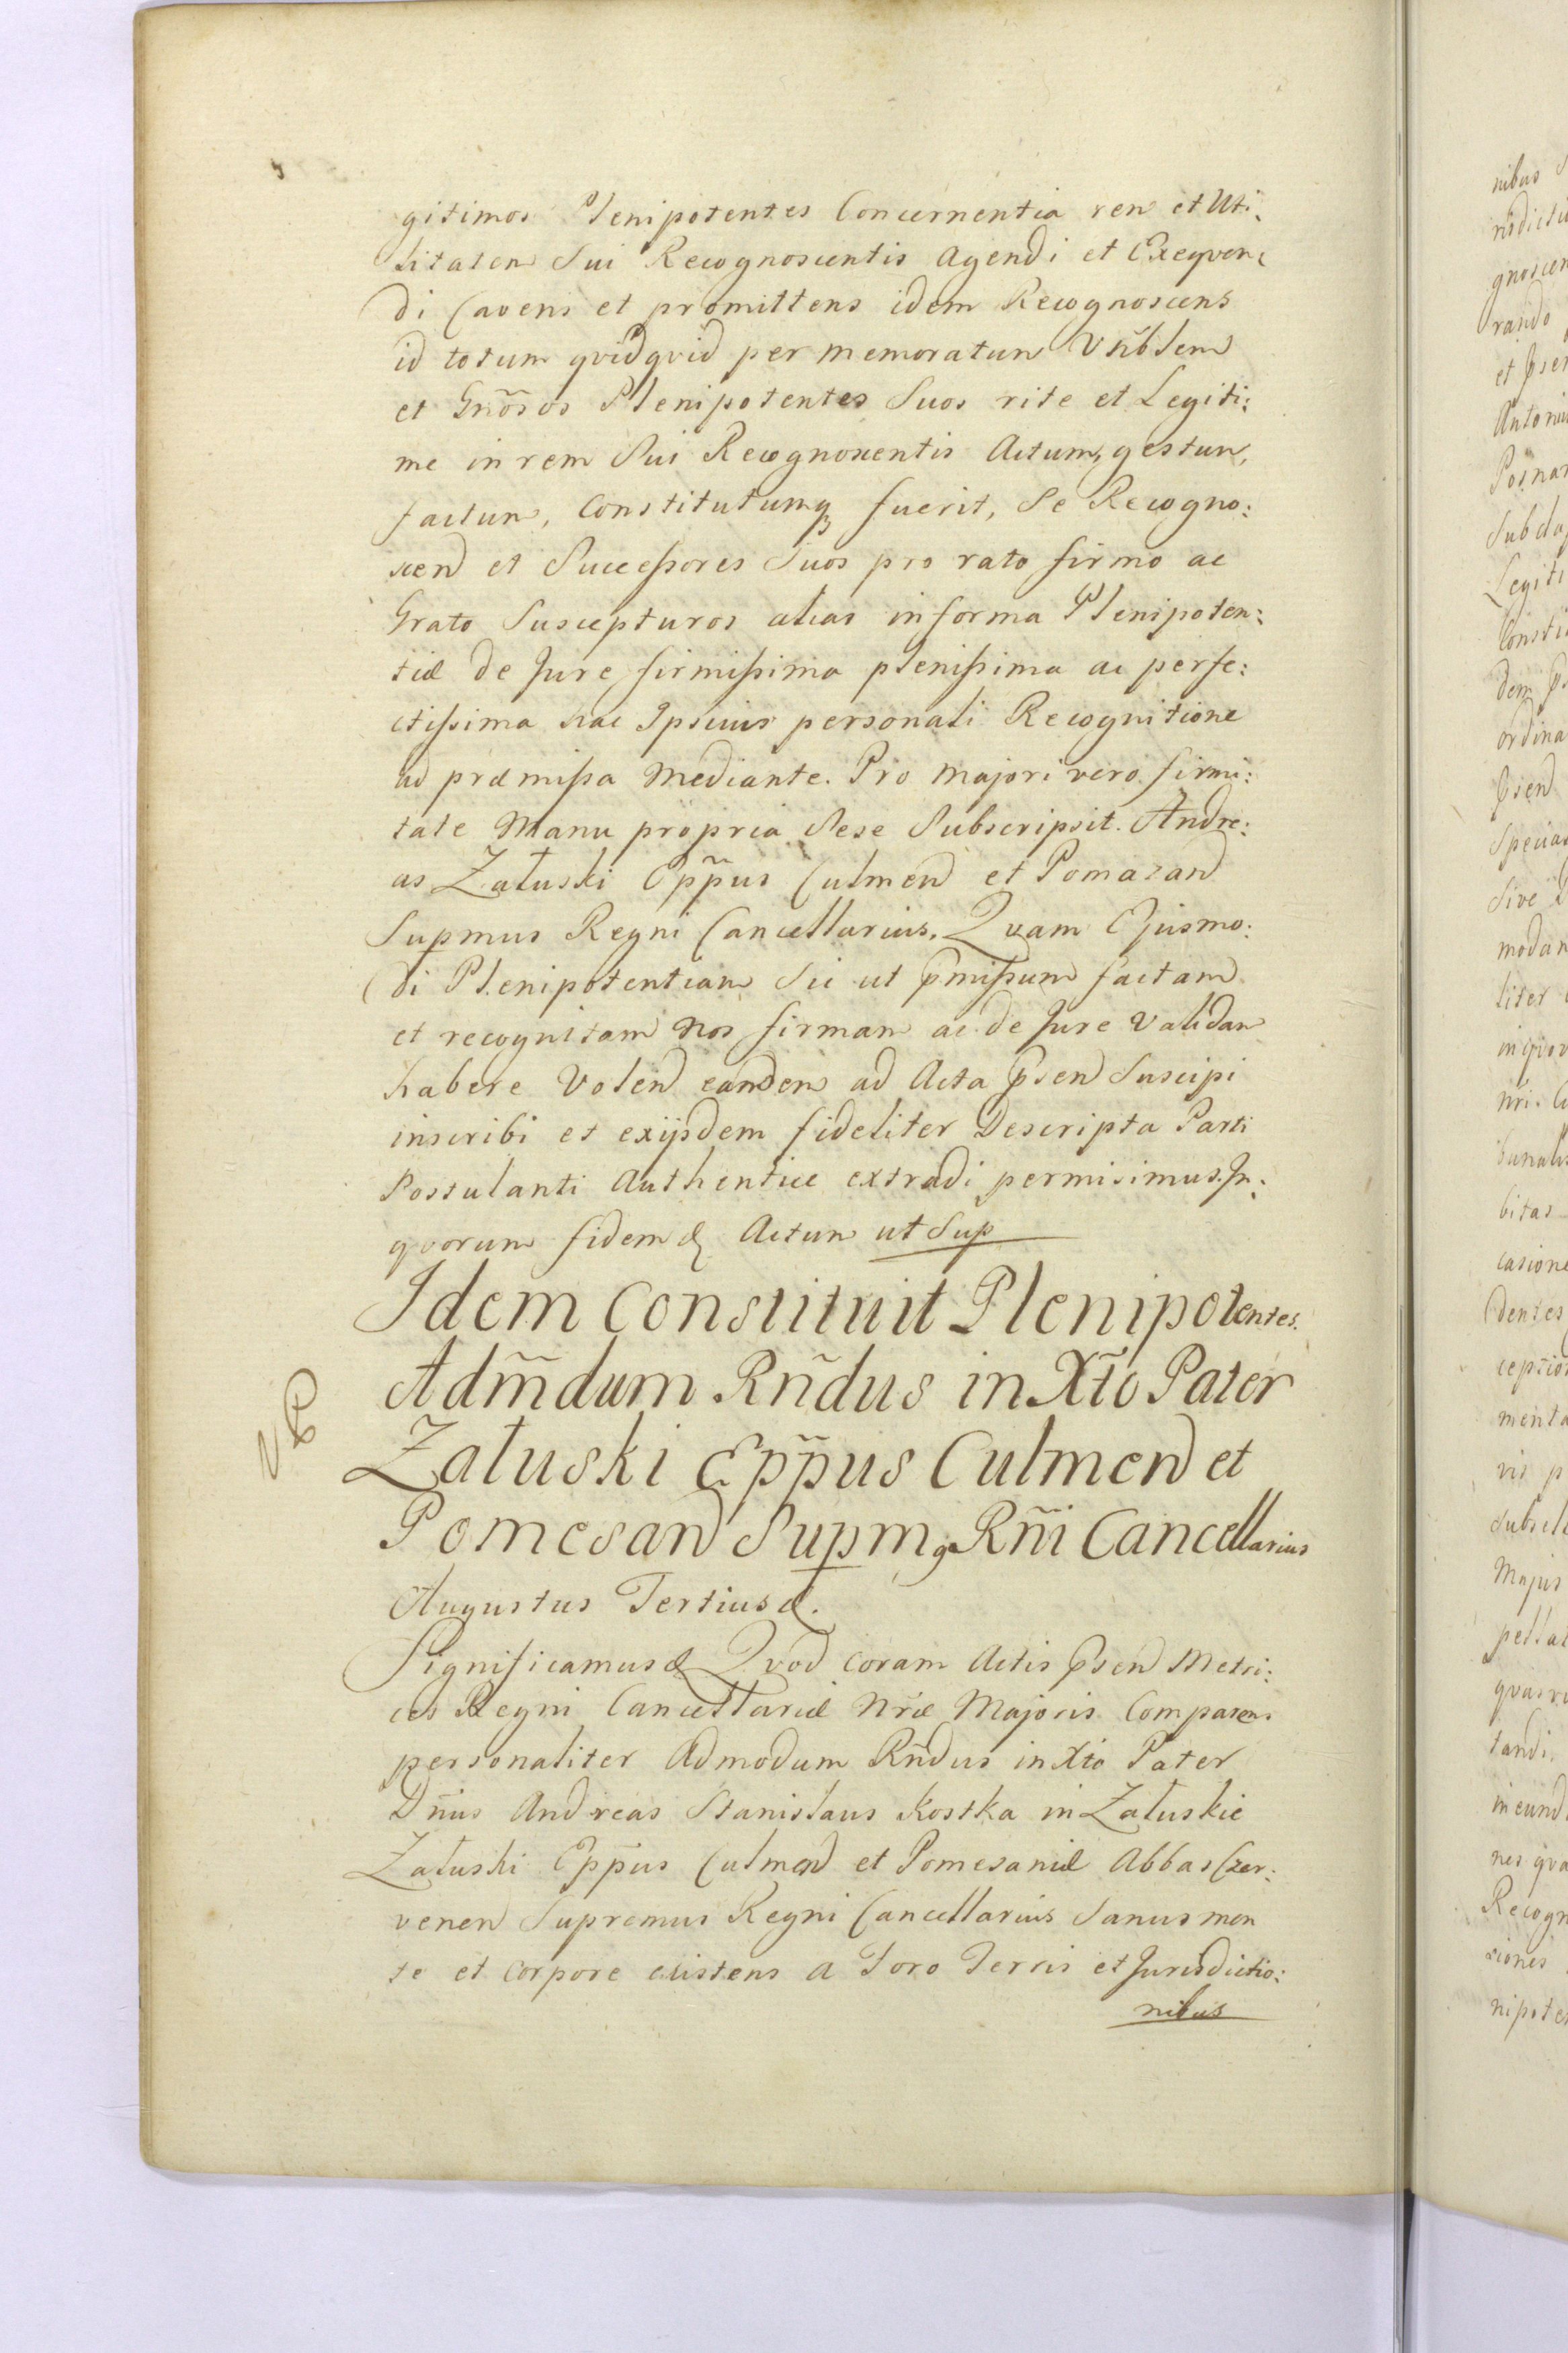 gitimos Plenipotentes Concernentia rem et Uti:
litatem Sui Recognoscentis Agendi et Exeqven:
di Cavens et promittens idem Recognoscens
id totum qvidqvid per memoratum Vrñblem
et Gnõsos Plenipotentes Suos rite et Legiti:
me in rem Sui Recognoscentis Actum, gestum,
factum, Constitutumq fuerit, Se Recogno:
scen et Successores Suos pro rato firmo ac
Grato Suscepturos alias in forma Plenipoten:
tiæ de Jure firmissima plenissima ac perfe:
ctissima hac Ipsius personali Recognitione
ad præmissa Mediante. Pro majori vero firmi:
tate Manu propria Sese Subscripsit. Andre:
as Załuski Epp̃us Culmen et Pomazan
Supmus Regni Cancellarius. Qvam Ejusmo:
di Plenipotentiam Sic ut p̃missum factam
et recognitam Nos firmam ac de Jure Validam
habere Volen eandem ad Acta p̃sen Suscipi
inscribi et exijsdem fideliter Descripta Parti
Postulanti Authentice extradi permisimus. In:
qvorum fidem & Actum ut Sup
Idem Constituit Plenipotentes.
Adm̃dum Rñdus in Xt̃o Pater
Załuski Epp̃us Culmen et
Pomesan Supmg Rñi Cancellarius
NB
Augustus Tertius &.
Significamus & Qvod coram Actis p̃sen Metri:
ces Regni Cancellariæ Nr̃æ Majoris Comparens
personaliter Admodum Rñdus in Xt̃o Pater
Dñus Andreas Stanislaus Kostka in Załuskie
Załuski Epp̃us Culmen et Pomesaniæ Abbas Czer:
venen Supremus Regni Cancellarius Sanus men
te et corpore existens a Foro Terris et Jurisdictio:
nibus